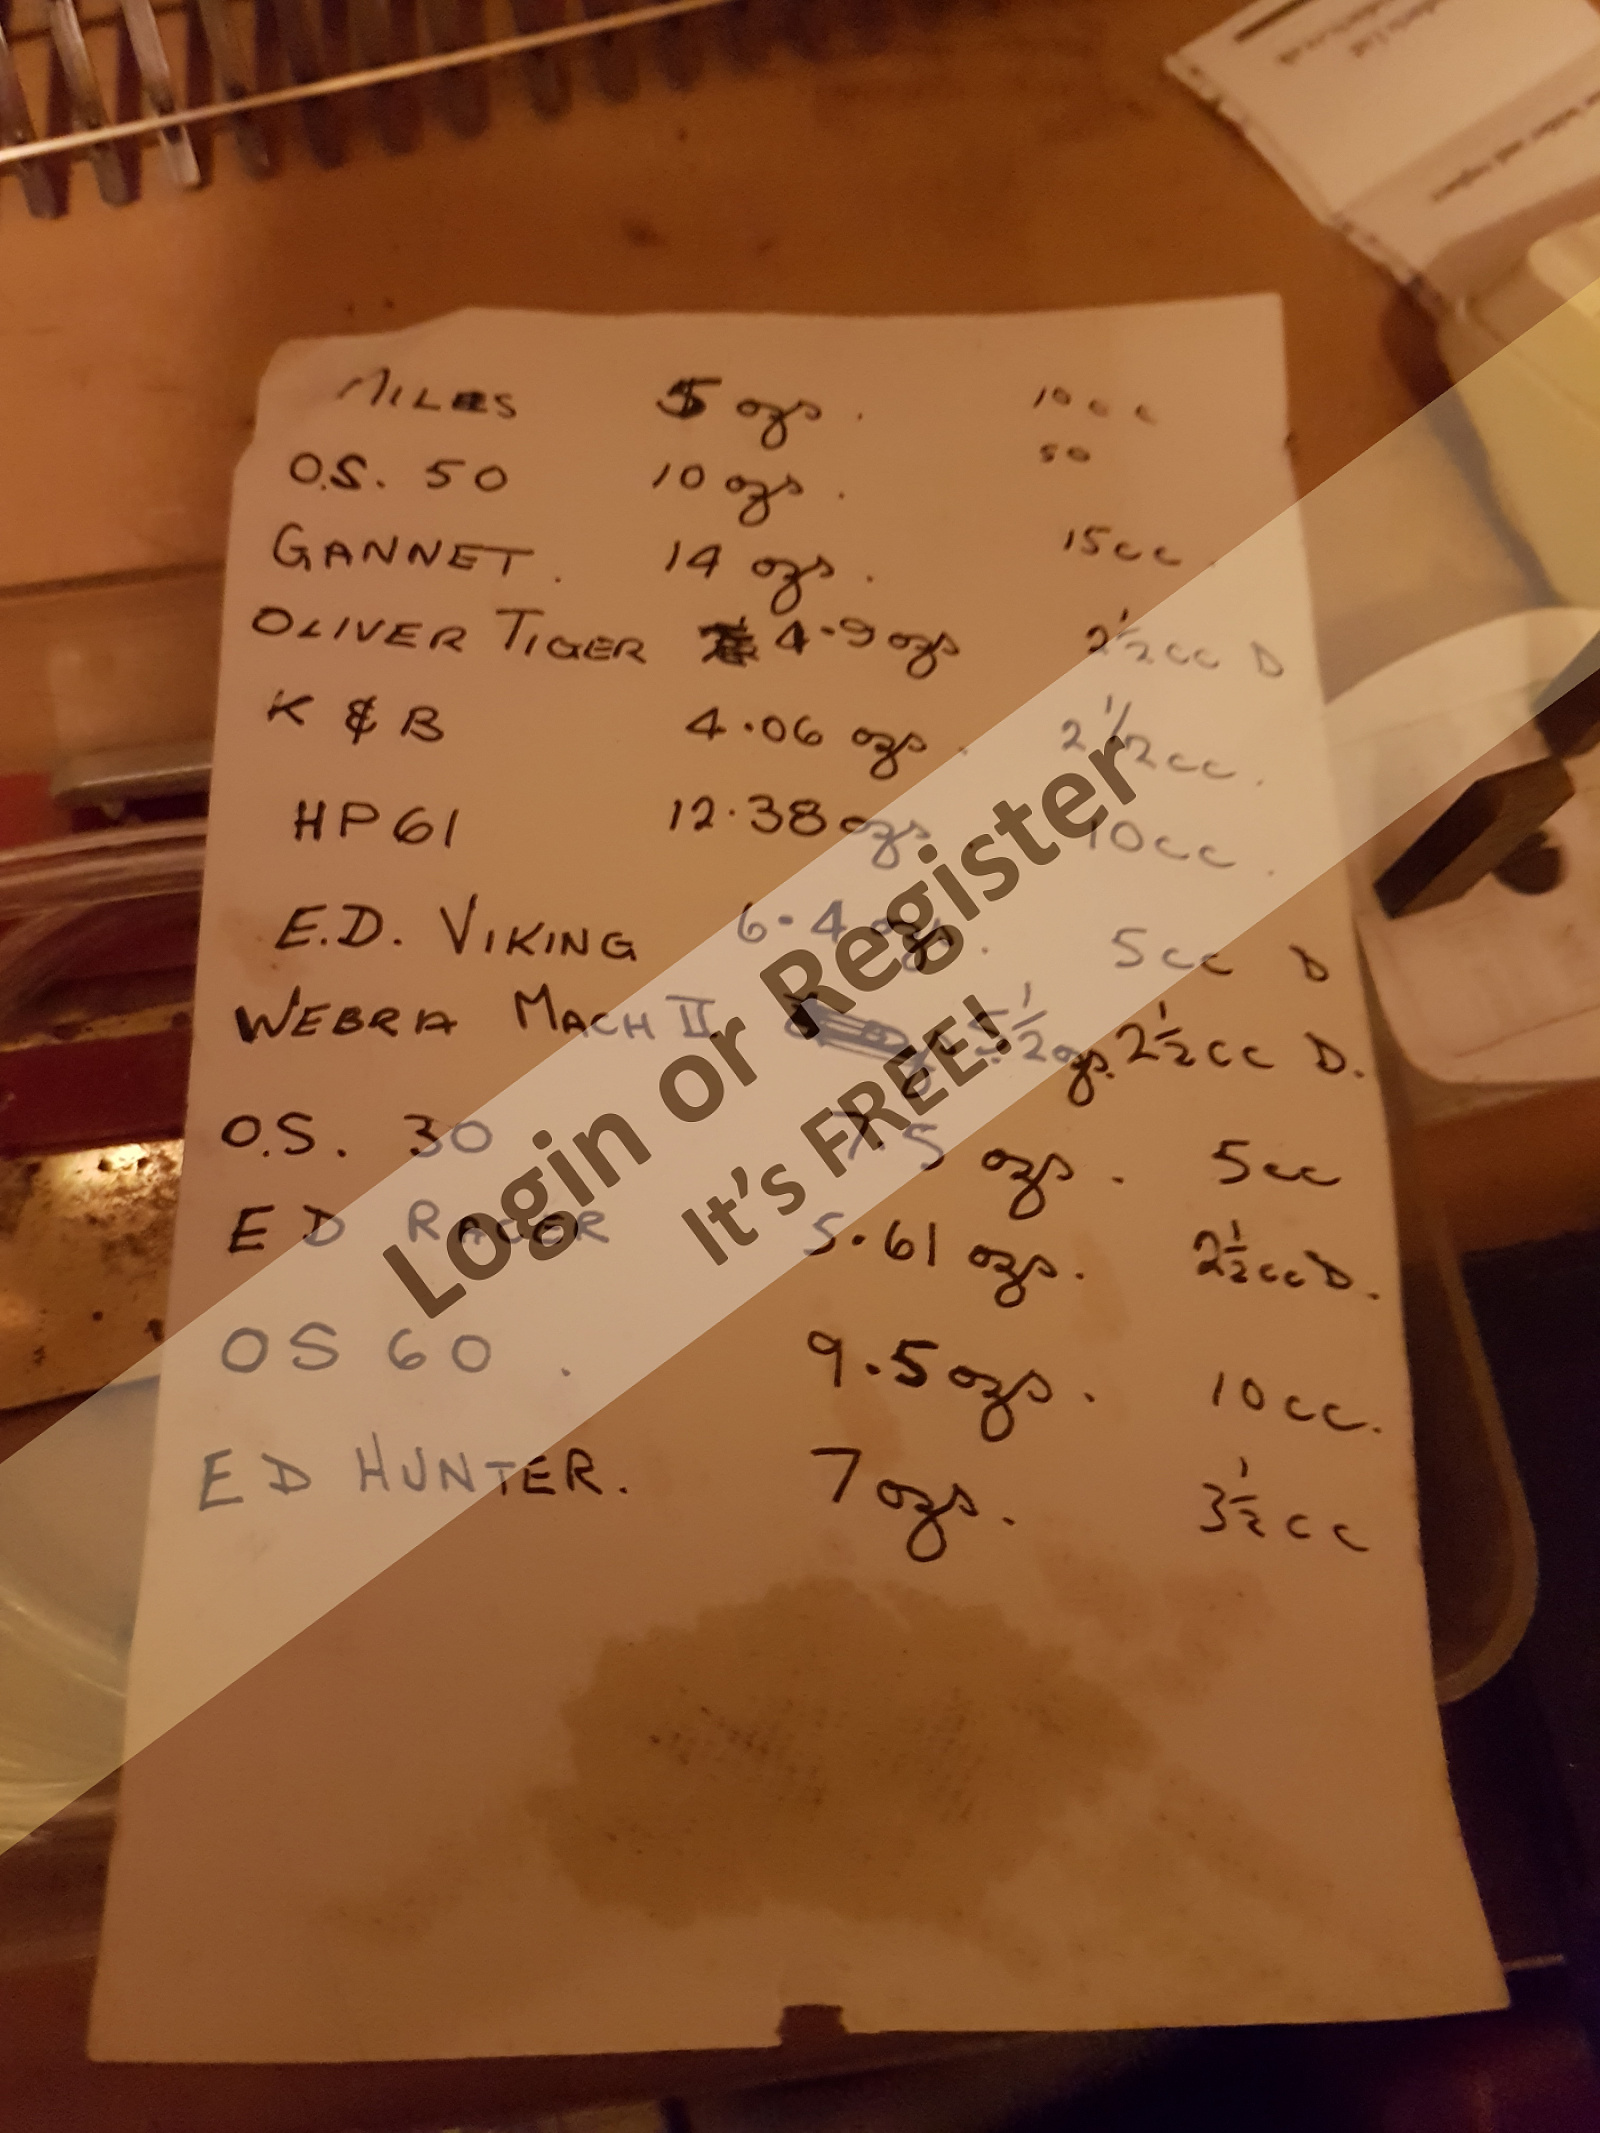 MILES 5 ozs. 10cc
O.S. 50 10 ozs. 50
GANNET. 14 ozs. 15cc.
OLIVER TIGER 4.9 ozs 2½cc D
K & B 4.06 ozs. 2 1/2cc.
HP61 12.38 ozs. 10cc.
E.D. VIKING 6.4 ozs. 5cc D
WEBRA MACH II 5½ ozs. 2½cc D.
O.S. 30 5 ozs. 5cc
ED RACER 5.61 ozs. 2½cc D.
OS 60. 9.5 ozs. 10cc.
ED HUNTER. 7 ozs. 3½cc
Login or Register
It's FREE!